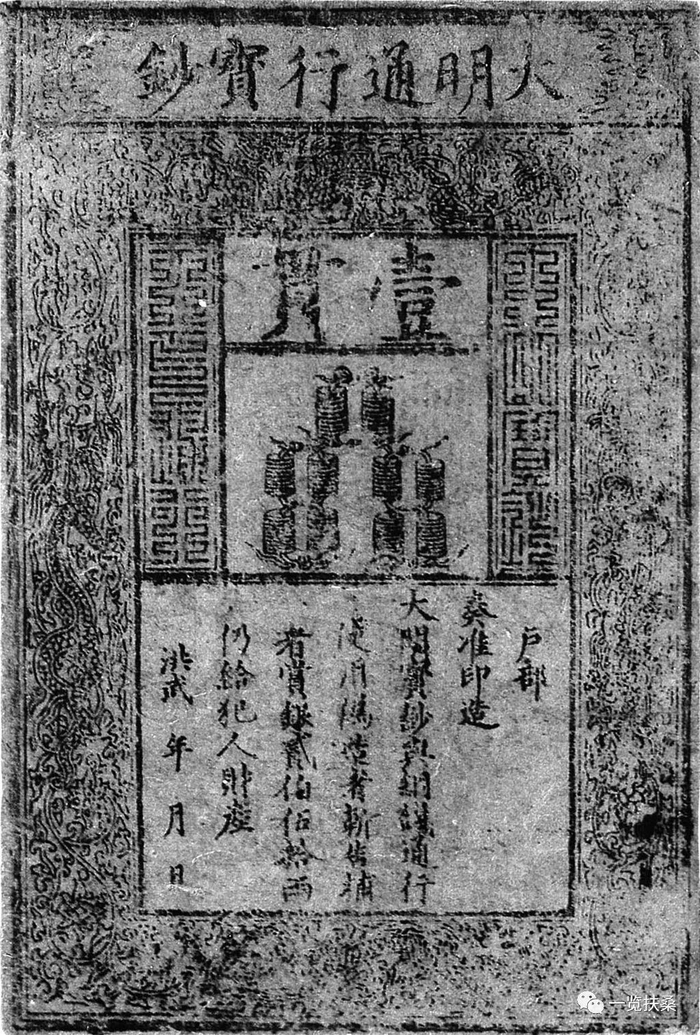 大明通行寶鈔
壹貫
戶部
奏准印造
大明寶鈔與銅錢通行
使用偽造者斬告捕
者賞銀貳伯伍拾兩
仍給犯人財產
洪武 年 月 日
一览扶桑